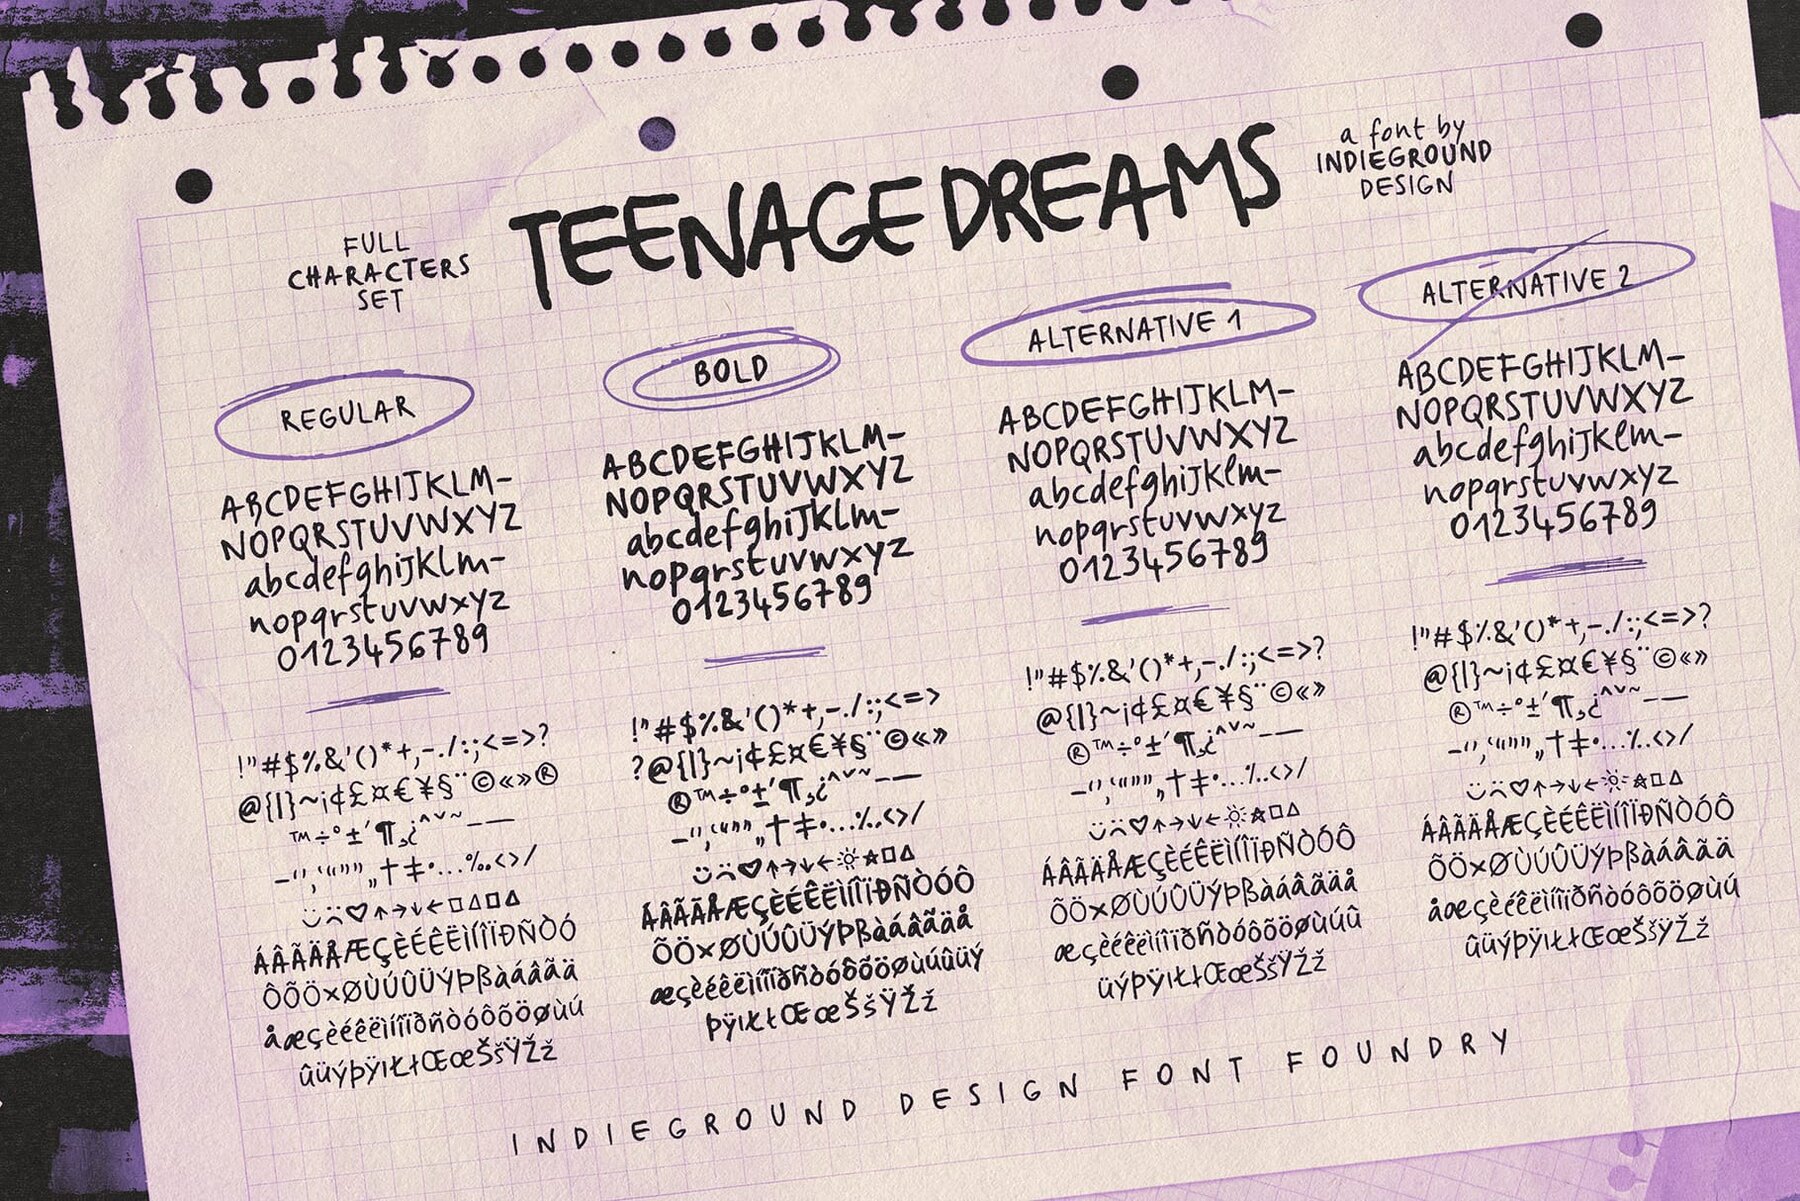 TEENAGE DREAMS
a font by
INDIEGROUND
DESIGN
FULL
CHARACTERS
SET
REGULAR
ABCDEFGHIJKLM-
NOPQRSTUVWXYZ
abcdefghijklm-
nopqrstuvwxyz
0123456789
!"#$%&'()*+,-./:;<=>?
@{|}~¡¢£¤€¥§¨©«»®
™÷°±´¶¸¿^ˇ~–—
–‘’‚“”„†‡•…‰‹›/
☺☹♡↑→↓←□△□△
ÁÂÃÄÅÆÇÈÉÊËÌÍÎÏÐÑÒÓ
ÔÕÖ×ØÙÚÛÜÝÞßàáâãä
åæçèéêëìíîïðñòóôõöøùú
ûüýþÿıŁłŒœŠšŸŽž
BOLD
ABCDEFGHIJKLM-
NOPQRSTUVWXYZ
abcdefghijklm-
nopqrstuvwxyz
0123456789
!"#$%&'()*+,-./:;<=>
?@{|}~¡¢£¤€¥§¨©«»
®™÷°±´¶¸¿^ˇ~–—
–‘’‚“”„†‡•…‰‹›/
☺☹♡↑→↓←☼★□△
ÁÂÃÄÅÆÇÈÉÊËÌÍÎÏÐÑÒÓÔ
ÕÖ×ØÙÚÛÜÝÞßàáâãäå
æçèéêëìíîïðñòóôõöøùúûüý
þÿıŁłŒœŠšŸŽž
ALTERNATIVE 1
ABCDEFGHIJKLM-
NOPQRSTUVWXYZ
abcdefghijklm-
nopqrstuvwxyz
0123456789
!"#$%&'()*+,-./:;<=>?
@{|}~¡¢£¤€¥§¨©«»
®™÷°±´¶¸¿^ˇ~–—
–‘’‚“”„†‡•…‰‹›/
☺☹♡↑→↓←☼★□△
ÁÂÃÄÅÆÇÈÉÊËÌÍÎÏÐÑÒÓÔ
ÕÖ×ØÙÚÛÜÝÞßàáâãäå
æçèéêëìíîïðñòóôõöøùúû
üýþÿıŁłŒœŠšŸŽž
ALTERNATIVE 2
ABCDEFGHIJKLM-
NOPQRSTUVWXYZ
abcdefghijklm-
nopqrstuvwxyz
0123456789
!"#$%&'()*+,-./:;<=>?
@{|}~¡¢£¤€¥§¨©«»
®™÷°±´¶¸¿^ˇ~–—
–‘’‚“”„†‡•…‰‹›/
☺☹♡↑→↓←☼★□△
ÁÂÃÄÅÆÇÈÉÊËÌÍÎÏÐÑÒÓÔ
ÕÖ×ØÙÚÛÜÝÞßàáâãä
åæçèéêëìíîïðñòóôõöøùú
ûüýþÿıŁłŒœŠšŸŽž
INDIEGROUND DESIGN FONT FOUNDRY